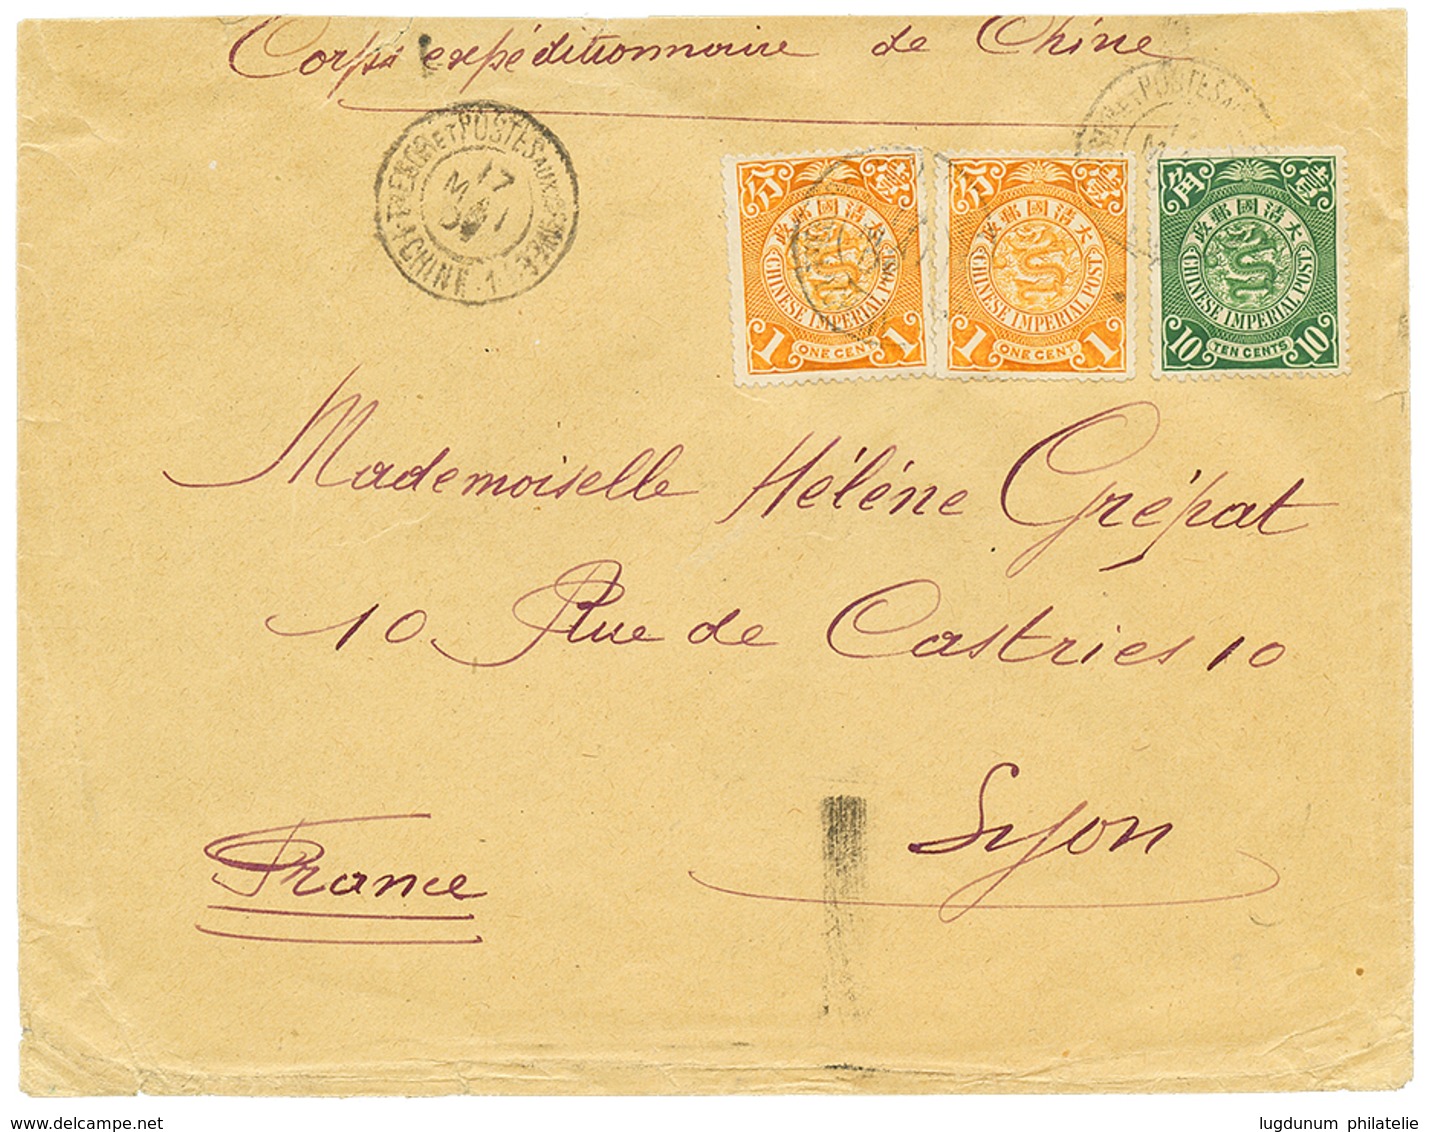 Corps expéditionnaire de Chine
TRESOR ET POSTES AUX ARMEES
17
MAI
CHINE · 1
TRESOR ET POSTES AUX
分 壹
大清國郵政
CHINESE IMPERIAL POST
1 ONE CENT 1
分 壹
大清國郵政
CHINESE IMPERIAL POST
1 ONE CENT 1
角 壹
大清國郵政
CHINESE IMPERIAL POST
10 TEN CENTS 10
Mademoiselle Hélène Grépat
10 Rue de Castries 10
Lyon
France
www.delcampe.net
lugdunum philatelie